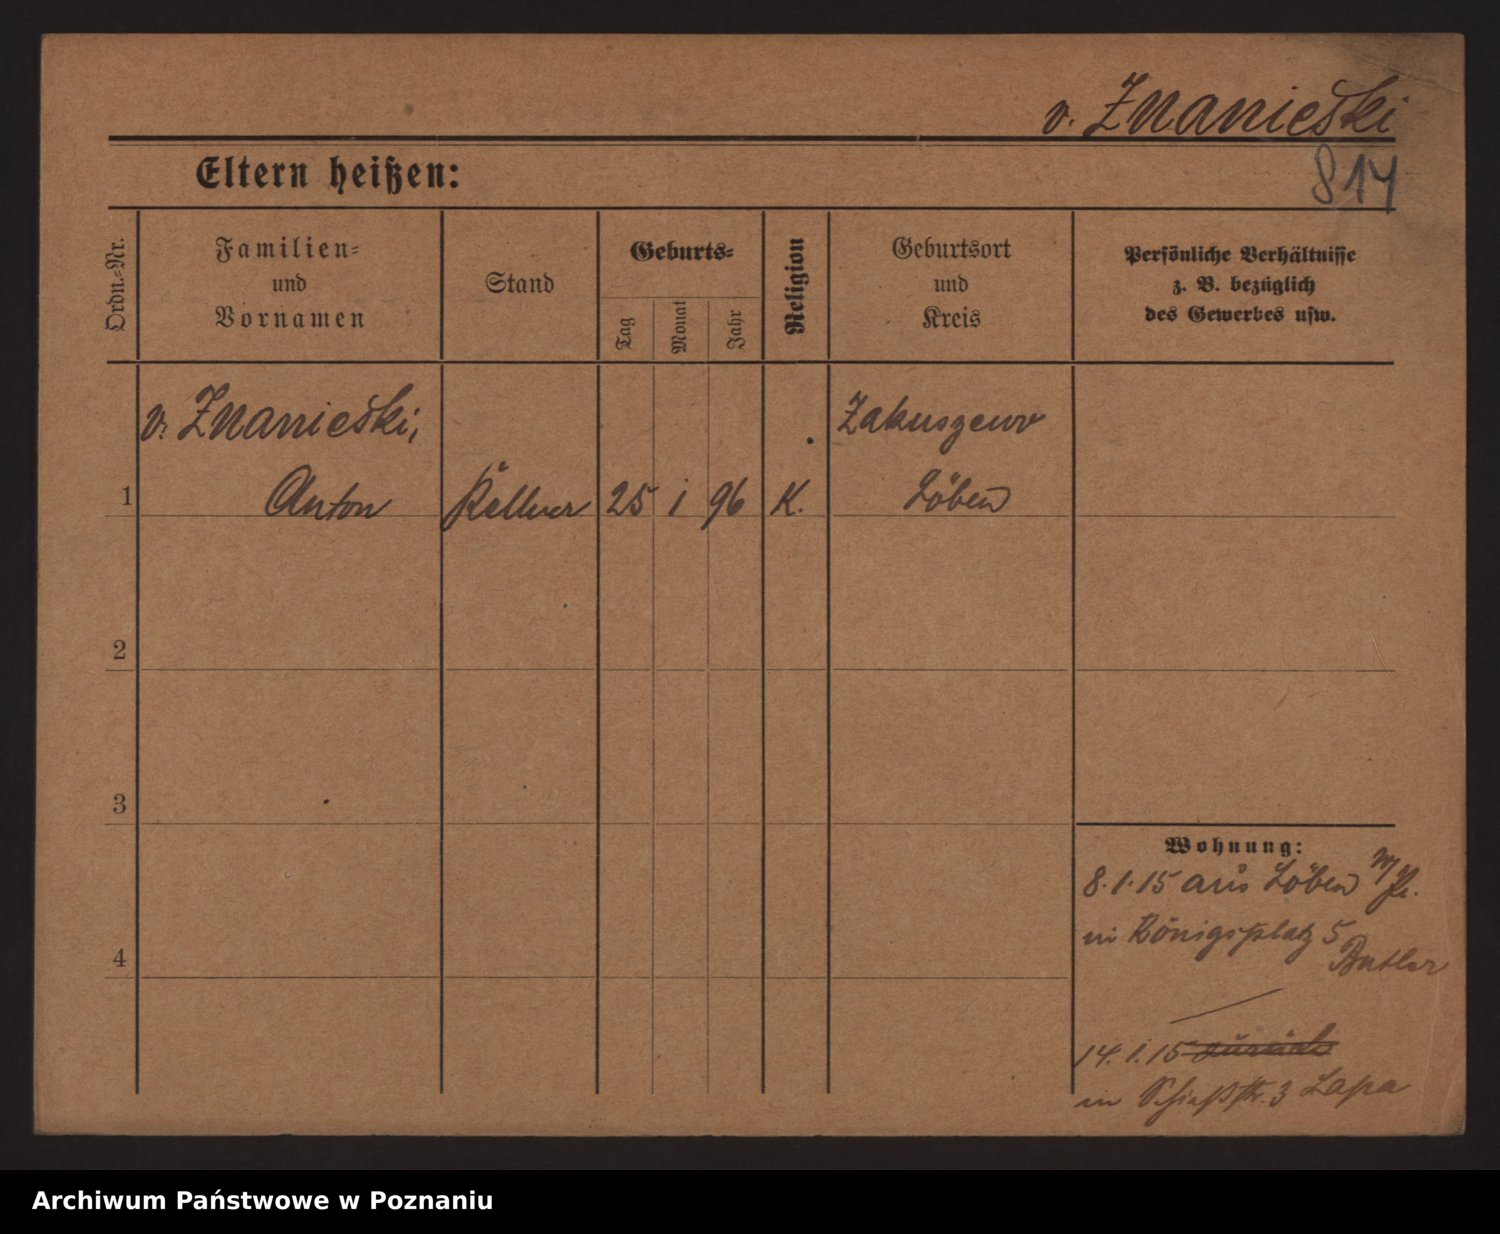 v. Znanieški
814
Eltern heißen:
Ordn.-Nr.
Familien-
und
Vornamen
Stand
Geburts-
Tag
Monat
Jahr
Religion
Geburtsort
und
Kreis
Persönliche Verhältnisse
z. B. bezüglich
des Gewerbes usw.
v. Znanieški,
Zakuszew
1
Anton
Kellner
25
1
96
K.
Löben
2
3
4
Wohnung:
8.1.15 aus Löben
in Königsplatz 5
Butler
14.1.15 zurück
in Schießstr. 3 Lapa
Archiwum Państwowe w Poznaniu